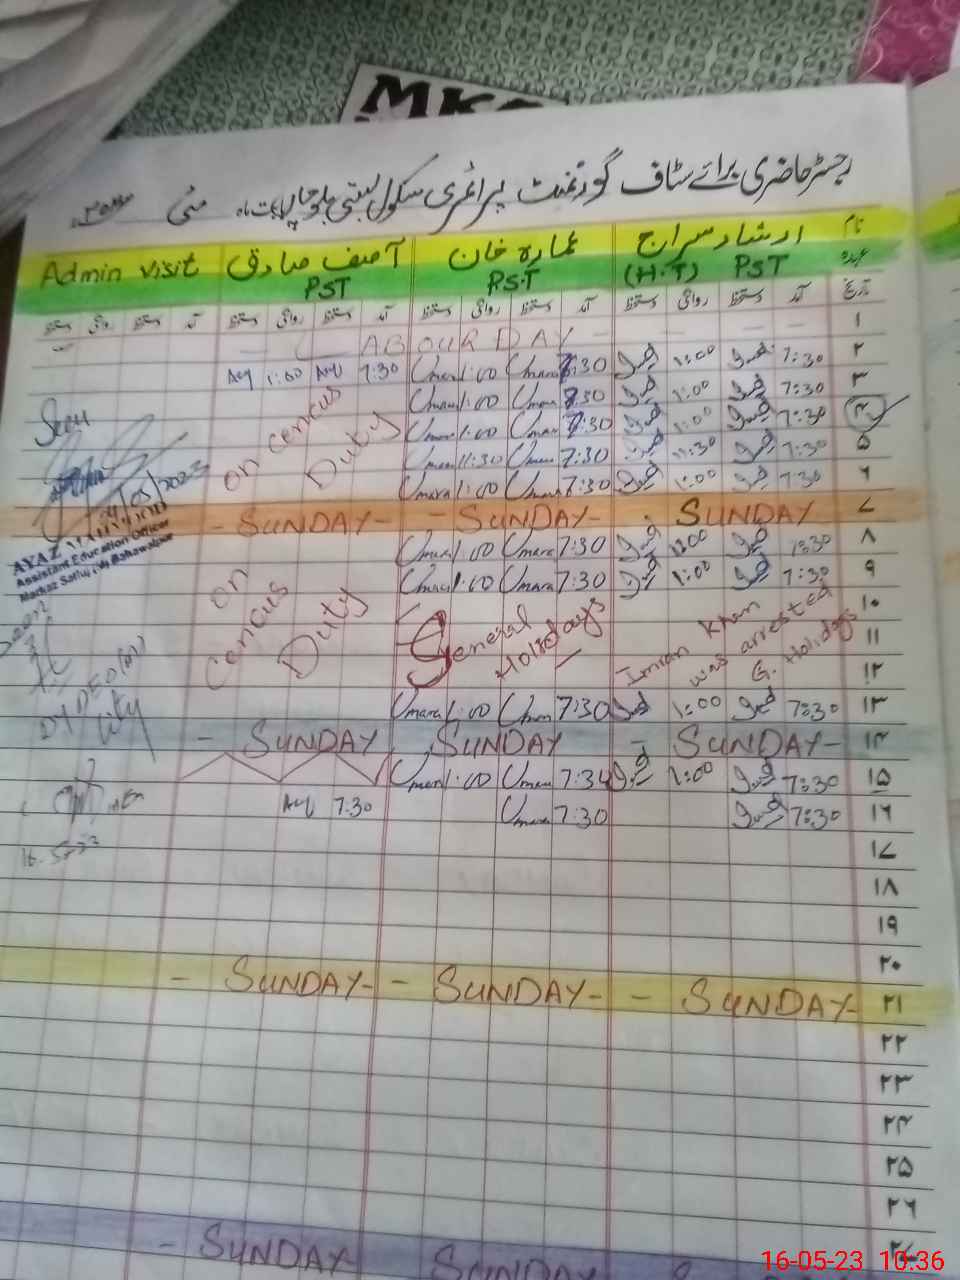 MK
رجسٹر حاضری برائے سٹاف گورنمنٹ پرائمری سکول بستی بلوچاں بابت ماہ مئی
Admin visit آصف صادق عمارہ خان ارشاد سراج نام
PST P.S.T (H.T) PST عہدہ
دستخط روانگی دستخط آمد دستخط روانگی دستخط آمد دستخط روانگی دستخط آمد دستخط روانگی دستخط آمد تاریخ
ABOUR DAY ۱
1:00 7:30 Umara 1:00 Umara 7:30 1:00 7:30 ۲
Umara 1:00 Umara 7:30 1:00 7:30 ۳
Seen on cencus Duty Umara 1:00 Umara 7:30 1:00 7:30 ۴
Umara 11:30 Umara 7:30 11:30 7:30 ۵
/05/2023 Umara 1:00 Umara 7:30 1:00 7:30 ۶
- SUNDAY - - SUNDAY - - SUNDAY ۷
AYAZ Umara 1:00 Umara 7:30 1:00 7:30 ۸
Assistant Education Officer
Markaz Satluj (W) Bahawalpur
Umara 1:00 Umara 7:30 1:00 7:30 ۹
on cencus Duty General Holidays Imran Khan was arrested G. Holidays ۱۰
۱۱
۱۲
DY DEO(M) City
Umara 1:00 Umara 7:30 1:00 7:30 ۱۳
- SUNDAY SUNDAY - SUNDAY - ۱۴
Umara 1:00 Umara 7:34 1:00 7:30 ۱۵
7:30 Umara 7:30 7:30 ۱۶
16-5-23
۱۷
۱۸
۱۹
۲۰
- SUNDAY - - SUNDAY - - SUNDAY - ۲۱
۲۲
۲۳
۲۴
۲۵
۲۶
- SUNDAY SUNDAY
16-05-23 10:36